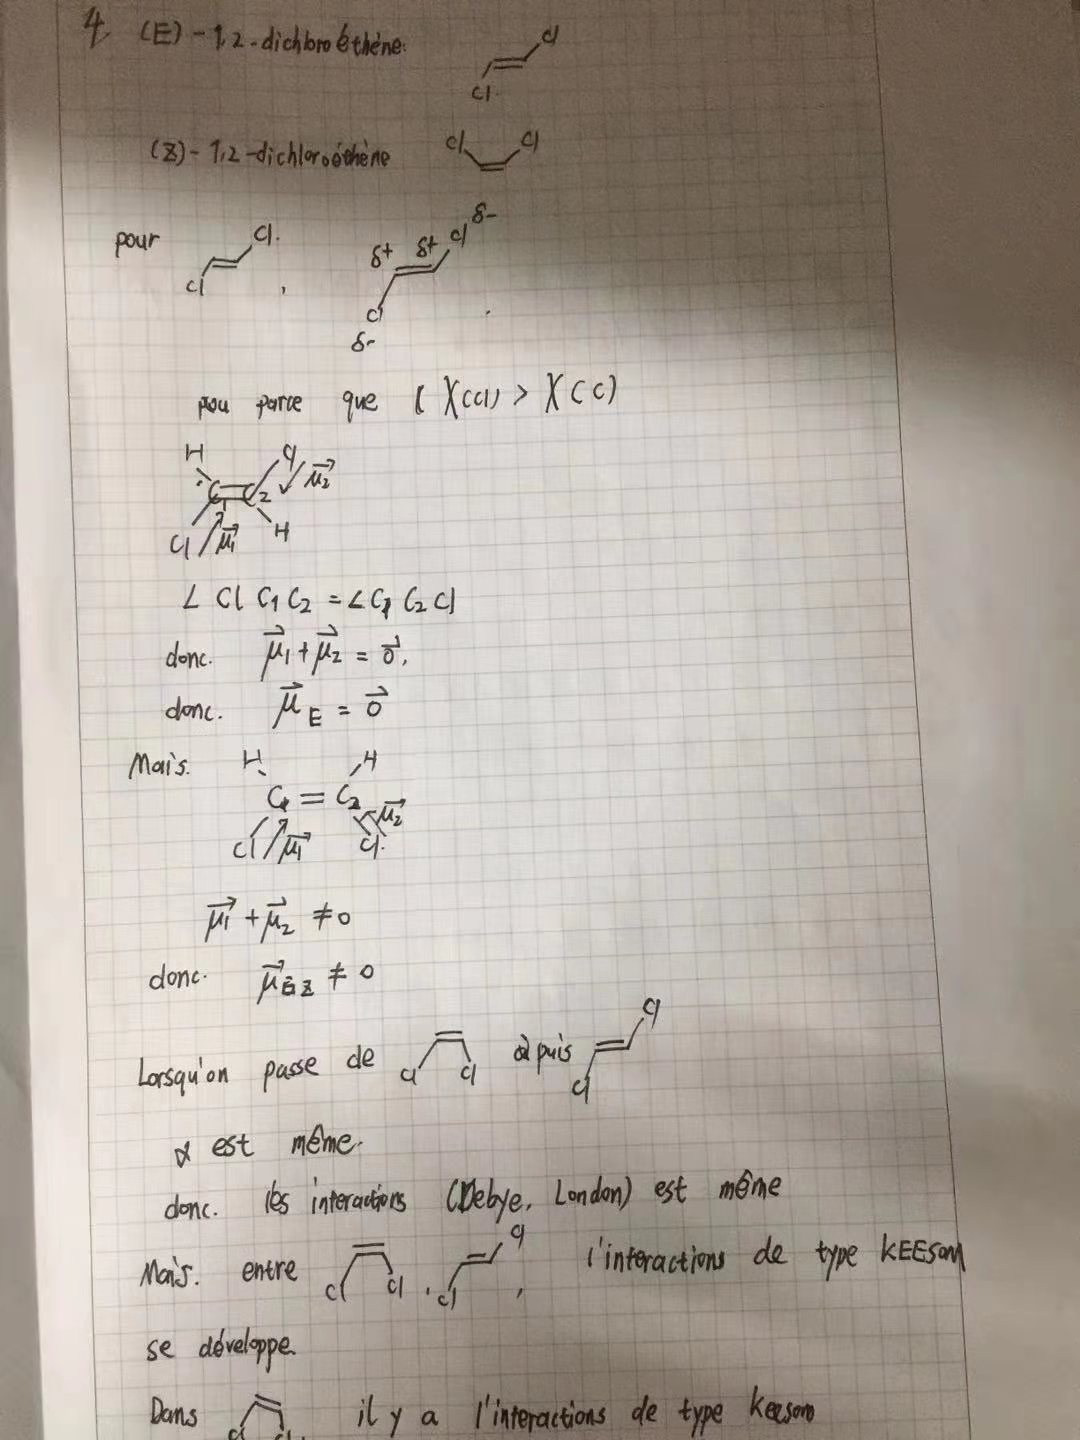 4 (E)-1,2-dichloroéthène. Cl
Cl
(Z)-1,2-dichloroéthène Cl Cl
pour Cl. Cl , δ+ δ+ Cl δ-
Cl
δ-
parce que ( χ(Cl) > χ(C)
H Cl μ₂
C₁ = C₂
Cl μ₁ H
∠ Cl C₁ C₂ = ∠ C₁ C₂ Cl
donc. μ₁ + μ₂ = 0,
donc. μ E = 0
Mais. H H
C₁ = C₂
Cl μ₁ Cl. μ₂
μ₁ + μ₂ ≠ 0
donc. μ Z ≠ 0
Lorsqu'on passe de Cl Cl puis Cl Cl
α est même.
donc. les interactions (Debye, London) est même
Mais. entre Cl Cl , Cl Cl , l'interactions de type KEEsom
se développe.
Dans Cl Cl il y a l'interactions de type keesom